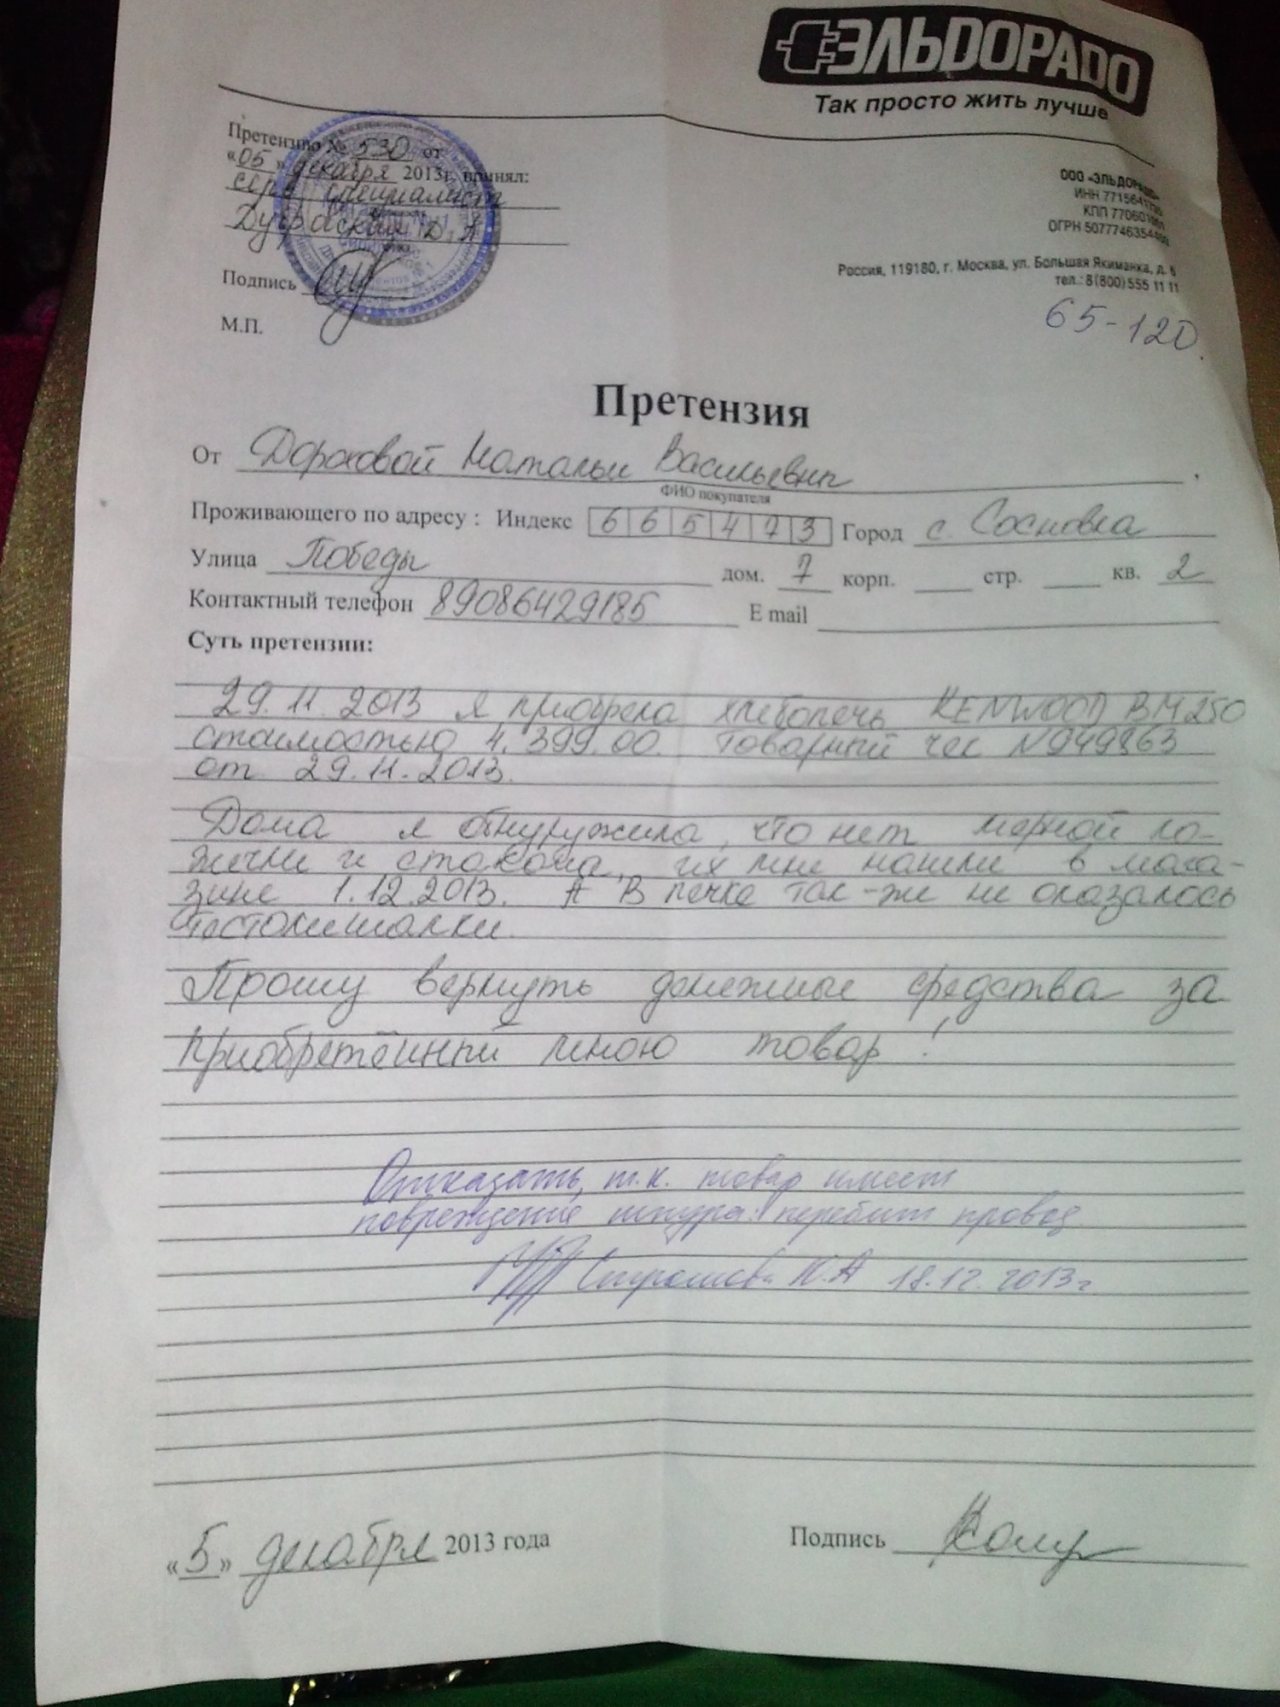 ЭЛЬДОРАДО
Так просто жить лучше
Претензию № 530 от
«05» декабря 2013г. принял:
серв специалист
Д.А
Подпись
М.П.
ООО «ЭЛЬДОРАДО»
ИНН
КПП
ОГРН
Россия, 119180, г. Москва, ул. Большая Якиманка, д. 6
тел.: 8(800)555 11 11
65-120.
Претензия
От Дороховой Натальи Васильевны
ФИО покупателя
Проживающего по адресу : Индекс 665473 Город с. Сосновка
Улица Победы дом. 7 корп. стр. кв. 2
Контактный телефон 89086429185 E mail
Суть претензии:
29.11.2013 я приобрела хлебопечь KENWOOD BM250
стоимостью 4.399.00. Товарный чес N949863
от 29.11.2013.
Дома я обнуружила, что нет мерной ло-
жечки и стакана, их мне нашли в мага-
зине 1.12.2013. А в печке так-же не оказалось
тестомешалки.
Прошу вернуть денежные средства за
приобретённый мною товар!
Отказать, т.к. товар имеет
повреждение шнура: перебит провод
К.А 18.12.2013г
«5» декабря 2013 года Подпись